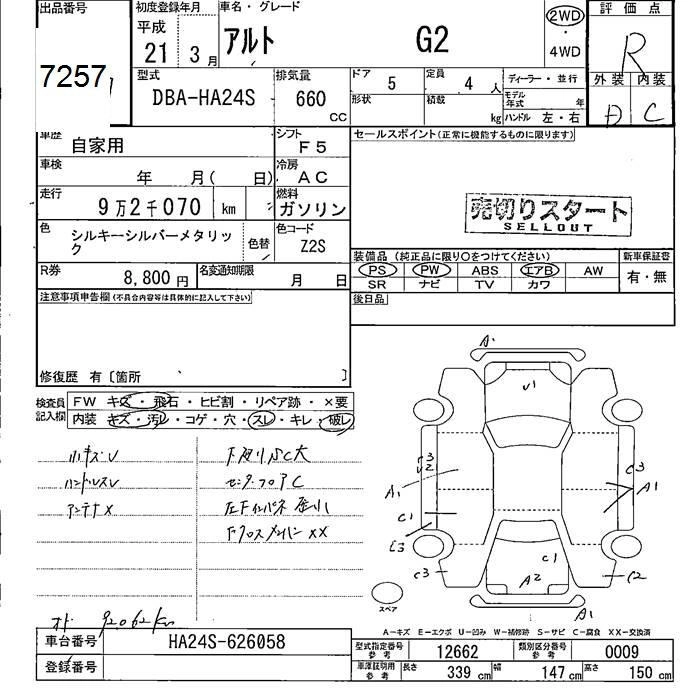 出品番号
7257
初度登録年月
平成
21 3月
車名・グレード
アルト G2
2WD
・
4WD
評価点
R
外装 内装
D C
型式
DBA-HA24S
排気量
660
CC
ドア
5
定員
4 人
ディーラー・並行
形状
積載
kg
モデル年式 年
ハンドル 左・右
車歴
自家用
シフト
F5
セールスポイント(正常に機能するものに限ります)
車検
年 月( 日)
冷房
AC
走行
9万2千070 km
燃料
ガソリン
売切りスタート
SELLOUT
色
シルキーシルバーメタリック
色替
色コード
Z2S
装備品(純正品に限り○をつけてください)
PS PW ABS エアB AW
SR ナビ TV カワ
新車保証書
有・無
R券
8,800円
名変通知期限
月 日
後日品
注意事項申告欄(不具合内容等は具体的に記入して下さい)
修復歴 有〔箇所 〕
検査員記入欄
FW キズ・飛石・ヒビ割・リペア跡・×要
内装 キズ・汚レ・コゲ・穴・スレ・キレ・破レ
小キズU
ハンドルスレ
アンテナX
下廻りSC大
センターフロアC
左Fインパネ歪小
FクロスメンバーXX
オド 92062km
A1
U1
E3
U2
A1
C1
E3
C3
C3
A1
C1
A2
C2
A1
スペア
A-キズ E-エクボ U-凹み W-補修跡 S-サビ C-腐食 XX-交換済
車台番号
HA24S-626058
登録番号
型式指定番号
参考
12662
類別区分番号
参考
0009
車庫証明用
参考
長さ 339 cm
幅 147 cm
高さ 150 cm